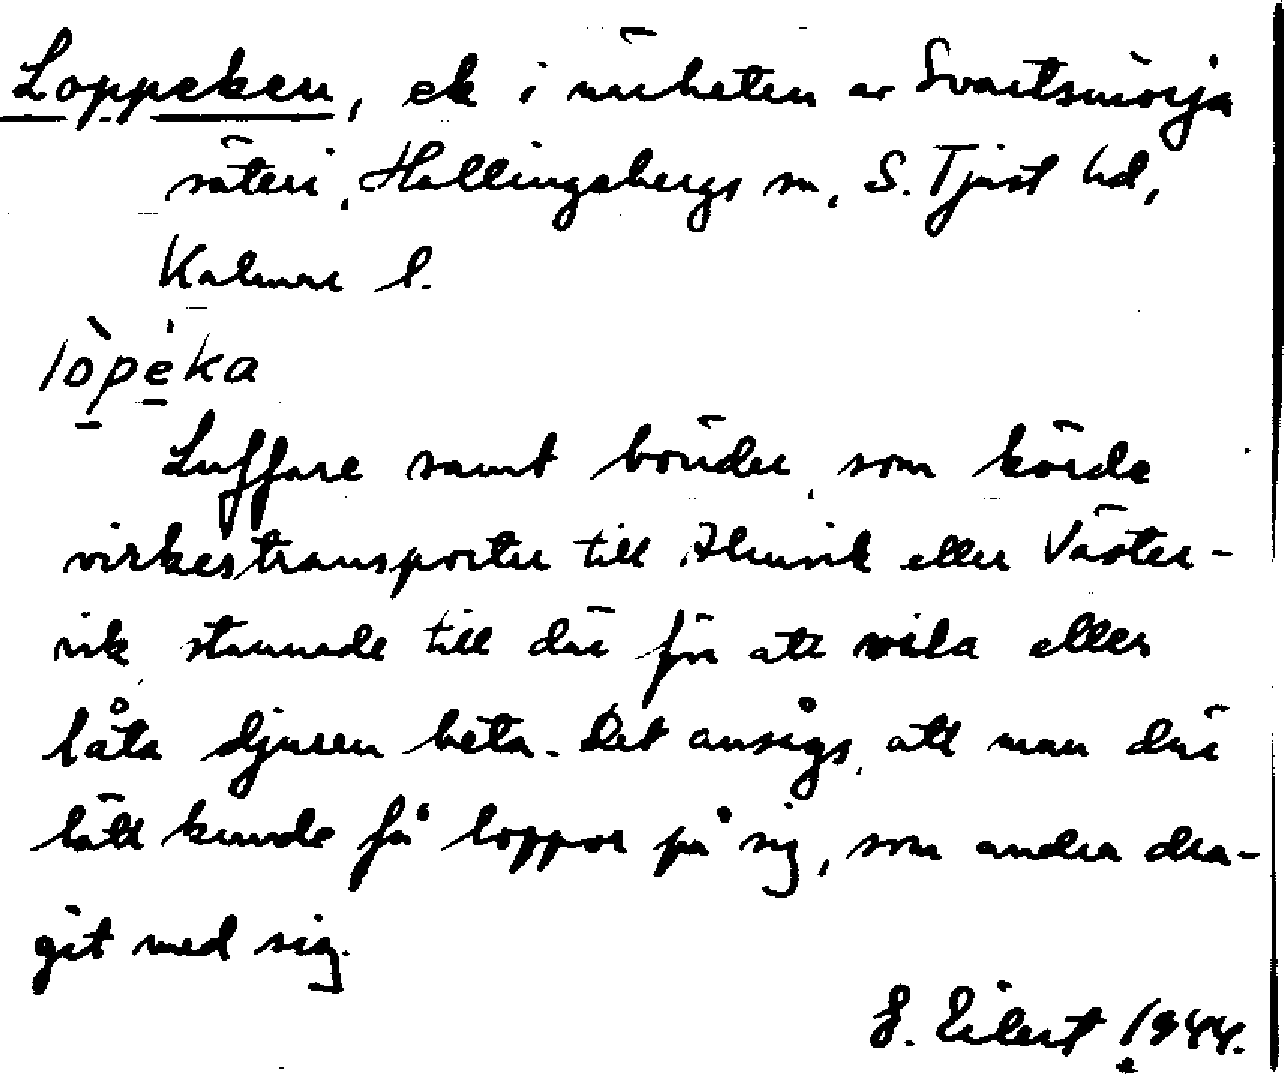 Loppeken, ek i närheten av Svartsmörja
säteri, Hallingebergs sn, S. Tjust hd,
Kalmar l.
lòpéka
Luffare samt bönder, som körde
virkestransporter till Almvik eller Väster-
vik stannade till där för att vila eller
låta djuren beta. Det ansågs, att man där
lätt kunde få loppor på sig, som andra dra-
git med sig.
Eilert 1944.